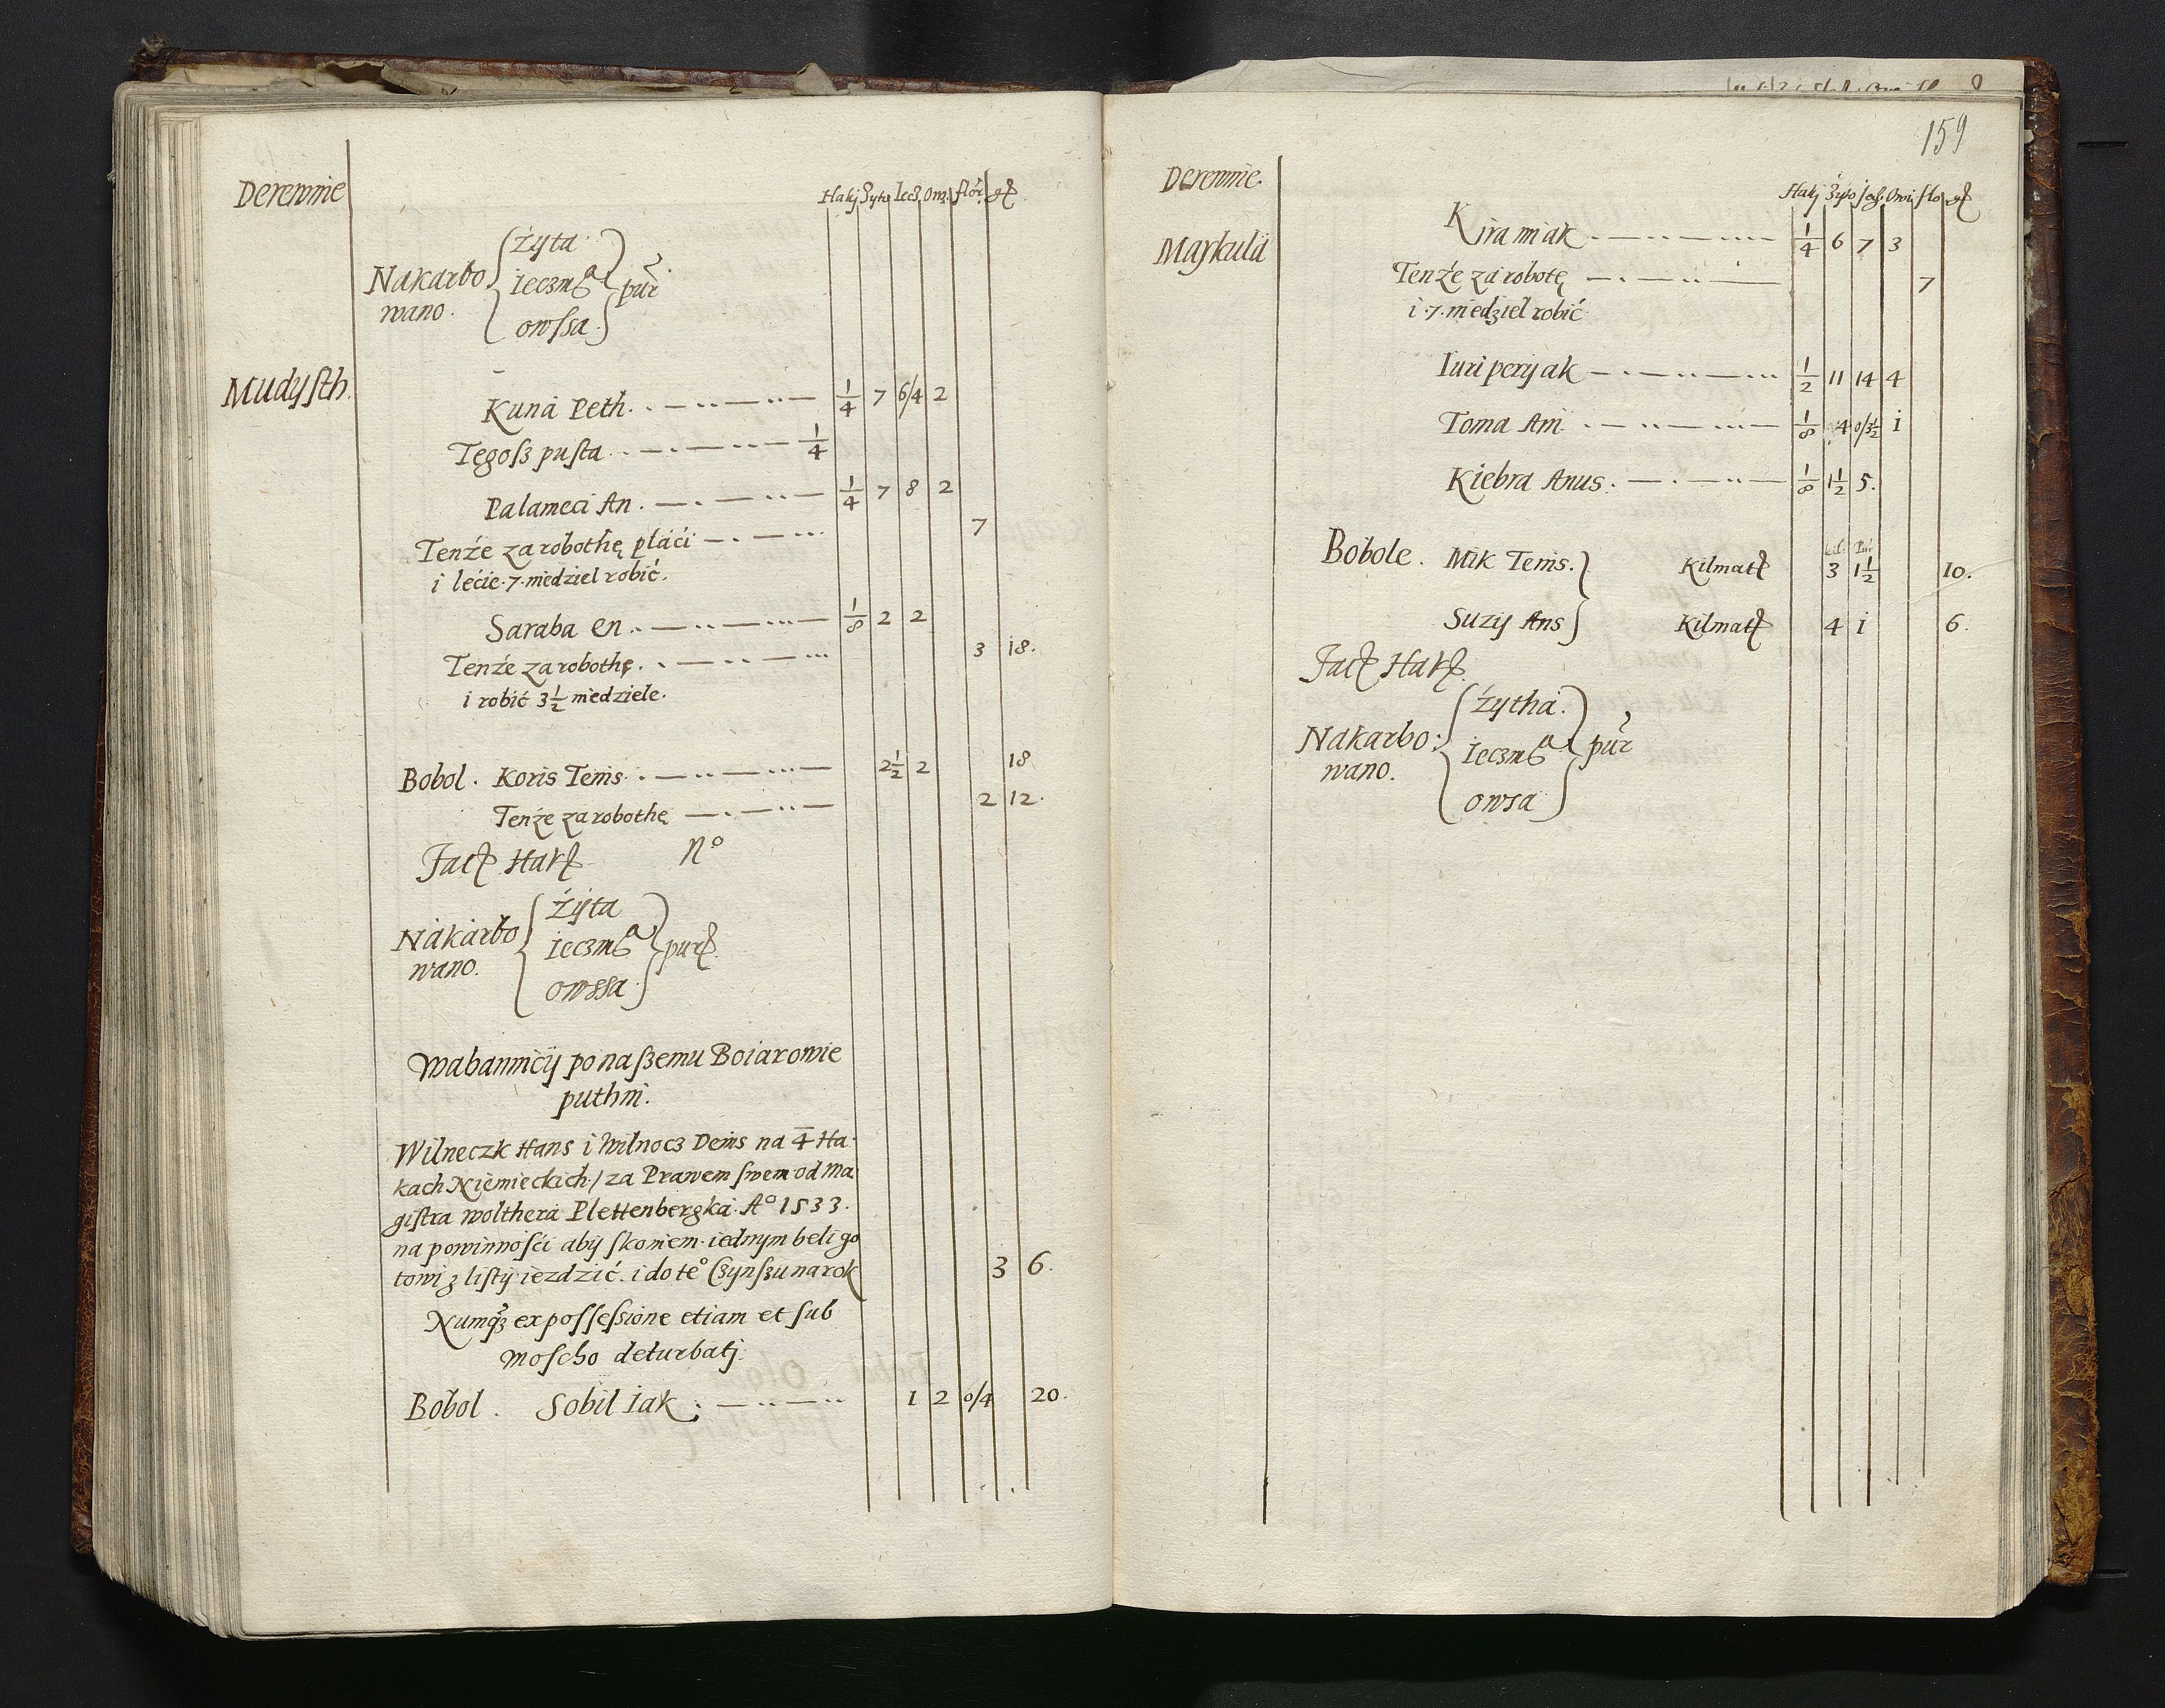 Derewnie
Haki Żyto Iecz. Ows. flor. gr
Nakarbo
wano.
żyta
ieczm
owſsa
pur
Mudyſth.
Kuna Peth. 1/4 7 6/4 2
Tegoſz puſta 1/4
Palameci An. 1/4 7 8 2
Tenże za robothę płáci 7
i lećie 7 niedziel robić.
Saraba En. 1/8 2 2
Tenże za robothę. 3 18.
i robić 3 1/2 niedziele.
Bobol. Koris Tenis. 2 1/2 2 18
Tenże za robothę 2 12.
Nº
Nákárbo
wano.
żyta
ieczm
owssa
pur
Wabannicÿ po naſzemu Boiarowie
puthni.
Wilneczk Hans i Wilnocz Denis na 4 Ha-
kach Niemieckich / za Prawem ſwem od Ma
giſtra Wolthera Plettenbergka. Aº 1533.
na powinnośći abÿ ſ koniem iednym beli go
towi z liſtÿ iezdzić. i do teº Czynſzu na rok 3 6.
Numqz ex poſſeſsione etiam et ſub
Moſcho deturbatj
Bobol. Sobil Iak. 1 2 0/4 20.
159
Derewnie.
Haki Żyto Ows flo gr
Maſkula
Kira miak 1/4 6 7 3
Tenże zá robotę 7
i 7. niedziel robić
Iuri perÿak 1/2 11 14 4
Toma Am 1/8 4 0/3 1/2 i
Kiebra Anus. 1/8 1 1/2 5.
Bobole. Mik Tenis. Kilmat 3 1 1/2 10.
Suzij Ans Kilmat 4 i 6.
Nakarbo
wano.
żythá.
Ieczm
owsa
pur